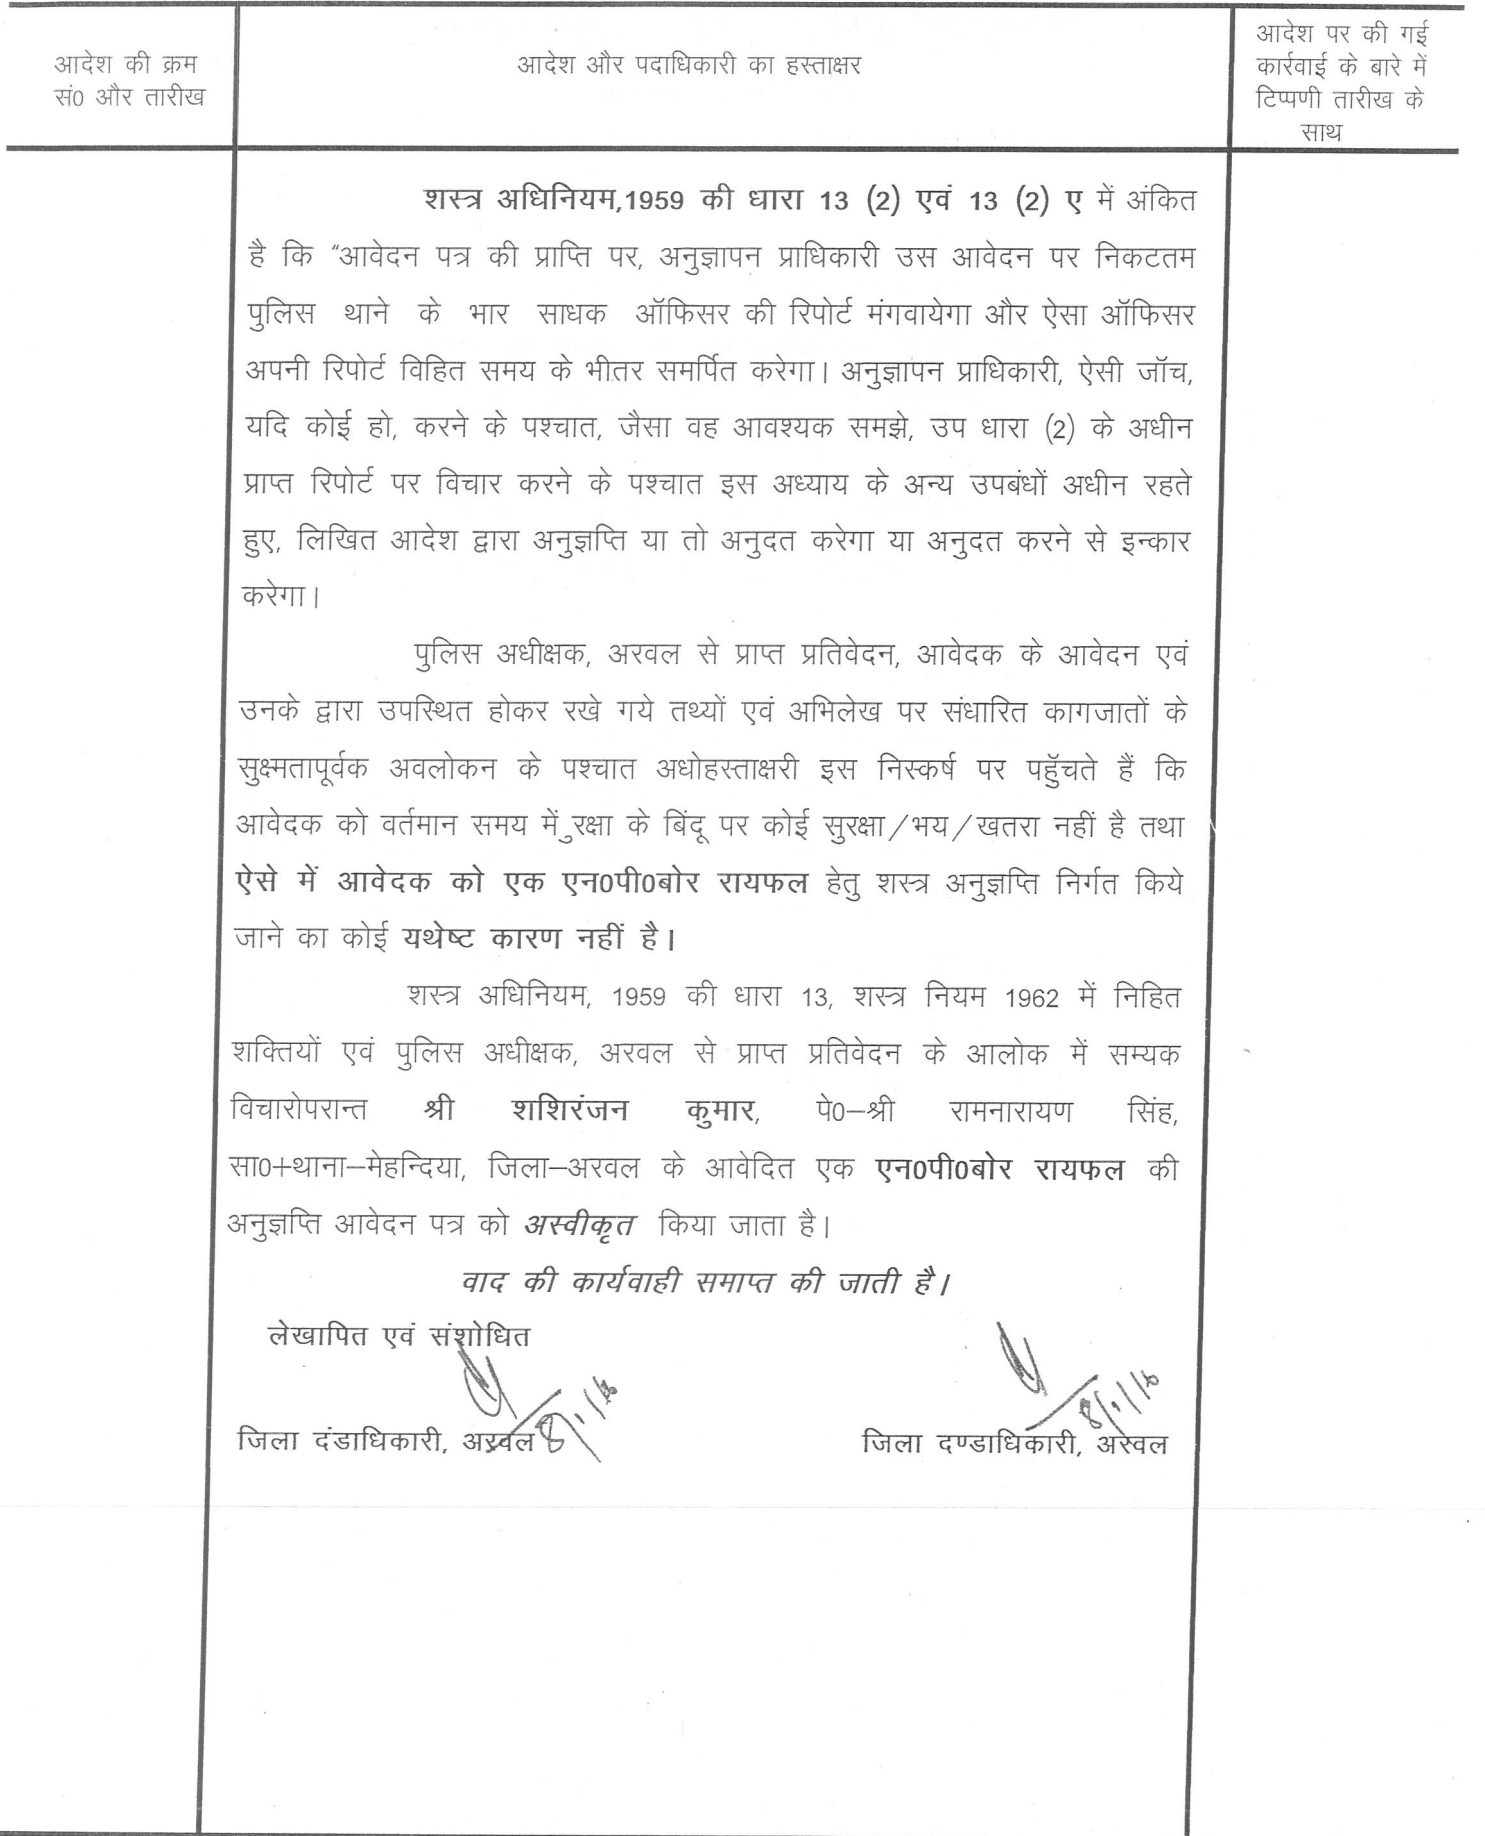 आदेश की क्रम
सं0 और तारीख
आदेश और पदाधिकारी का हस्ताक्षर
आदेश पर की गई
कार्रवाई के बारे में
टिप्पणी तारीख के
साथ
शस्त्र अधिनियम,1959 की धारा 13 (2) एवं 13 (2) ए में अंकित
है कि "आवेदन पत्र की प्राप्ति पर, अनुज्ञापन प्राधिकारी उस आवेदन पर निकटतम
पुलिस थाने के भार साधक ऑफिसर की रिपोर्ट मंगवायेगा और ऐसा ऑफिसर
अपनी रिपोर्ट विहित समय के भीतर समर्पित करेगा। अनुज्ञापन प्राधिकारी, ऐसी जॉच,
यदि कोई हो, करने के पश्चात, जैसा वह आवश्यक समझे, उप धारा (2) के अधीन
प्राप्त रिपोर्ट पर विचार करने के पश्चात इस अध्याय के अन्य उपबंधों अधीन रहते
हुए, लिखित आदेश द्वारा अनुज्ञप्ति या तो अनुदत करेगा या अनुदत करने से इन्कार
करेगा।
पुलिस अधीक्षक, अरवल से प्राप्त प्रतिवेदन, आवेदक के आवेदन एवं
उनके द्वारा उपस्थित होकर रखे गये तथ्यों एवं अभिलेख पर संधारित कागजातों के
सुक्ष्मतापूर्वक अवलोकन के पश्चात अधोहस्ताक्षरी इस निस्कर्ष पर पहुँचते हैं कि
आवेदक को वर्तमान समय में ुरक्षा के बिंदू पर कोई सुरक्षा/भय/खतरा नहीं है तथा
ऐसे में आवेदक को एक एन0पी0बोर रायफल हेतु शस्त्र अनुज्ञप्ति निर्गत किये
जाने का कोई यथेष्ट कारण नहीं है।
शस्त्र अधिनियम, 1959 की धारा 13, शस्त्र नियम 1962 में निहित
शक्तियों एवं पुलिस अधीक्षक, अरवल से प्राप्त प्रतिवेदन के आलोक में सम्यक
विचारोपरान्त श्री शशिरंजन कुमार, पे0–श्री रामनारायण सिंह,
सा0+थाना–मेहन्दिया, जिला–अरवल के आवेदित एक एन0पी0बोर रायफल की
अनुज्ञप्ति आवेदन पत्र को अस्वीकृत किया जाता है।
वाद की कार्यवाही समाप्त की जाती है।
लेखापित एवं संशोधित
8/1/16
8/1/16
जिला दंडाधिकारी, अरवल
जिला दण्डाधिकारी, अरवल